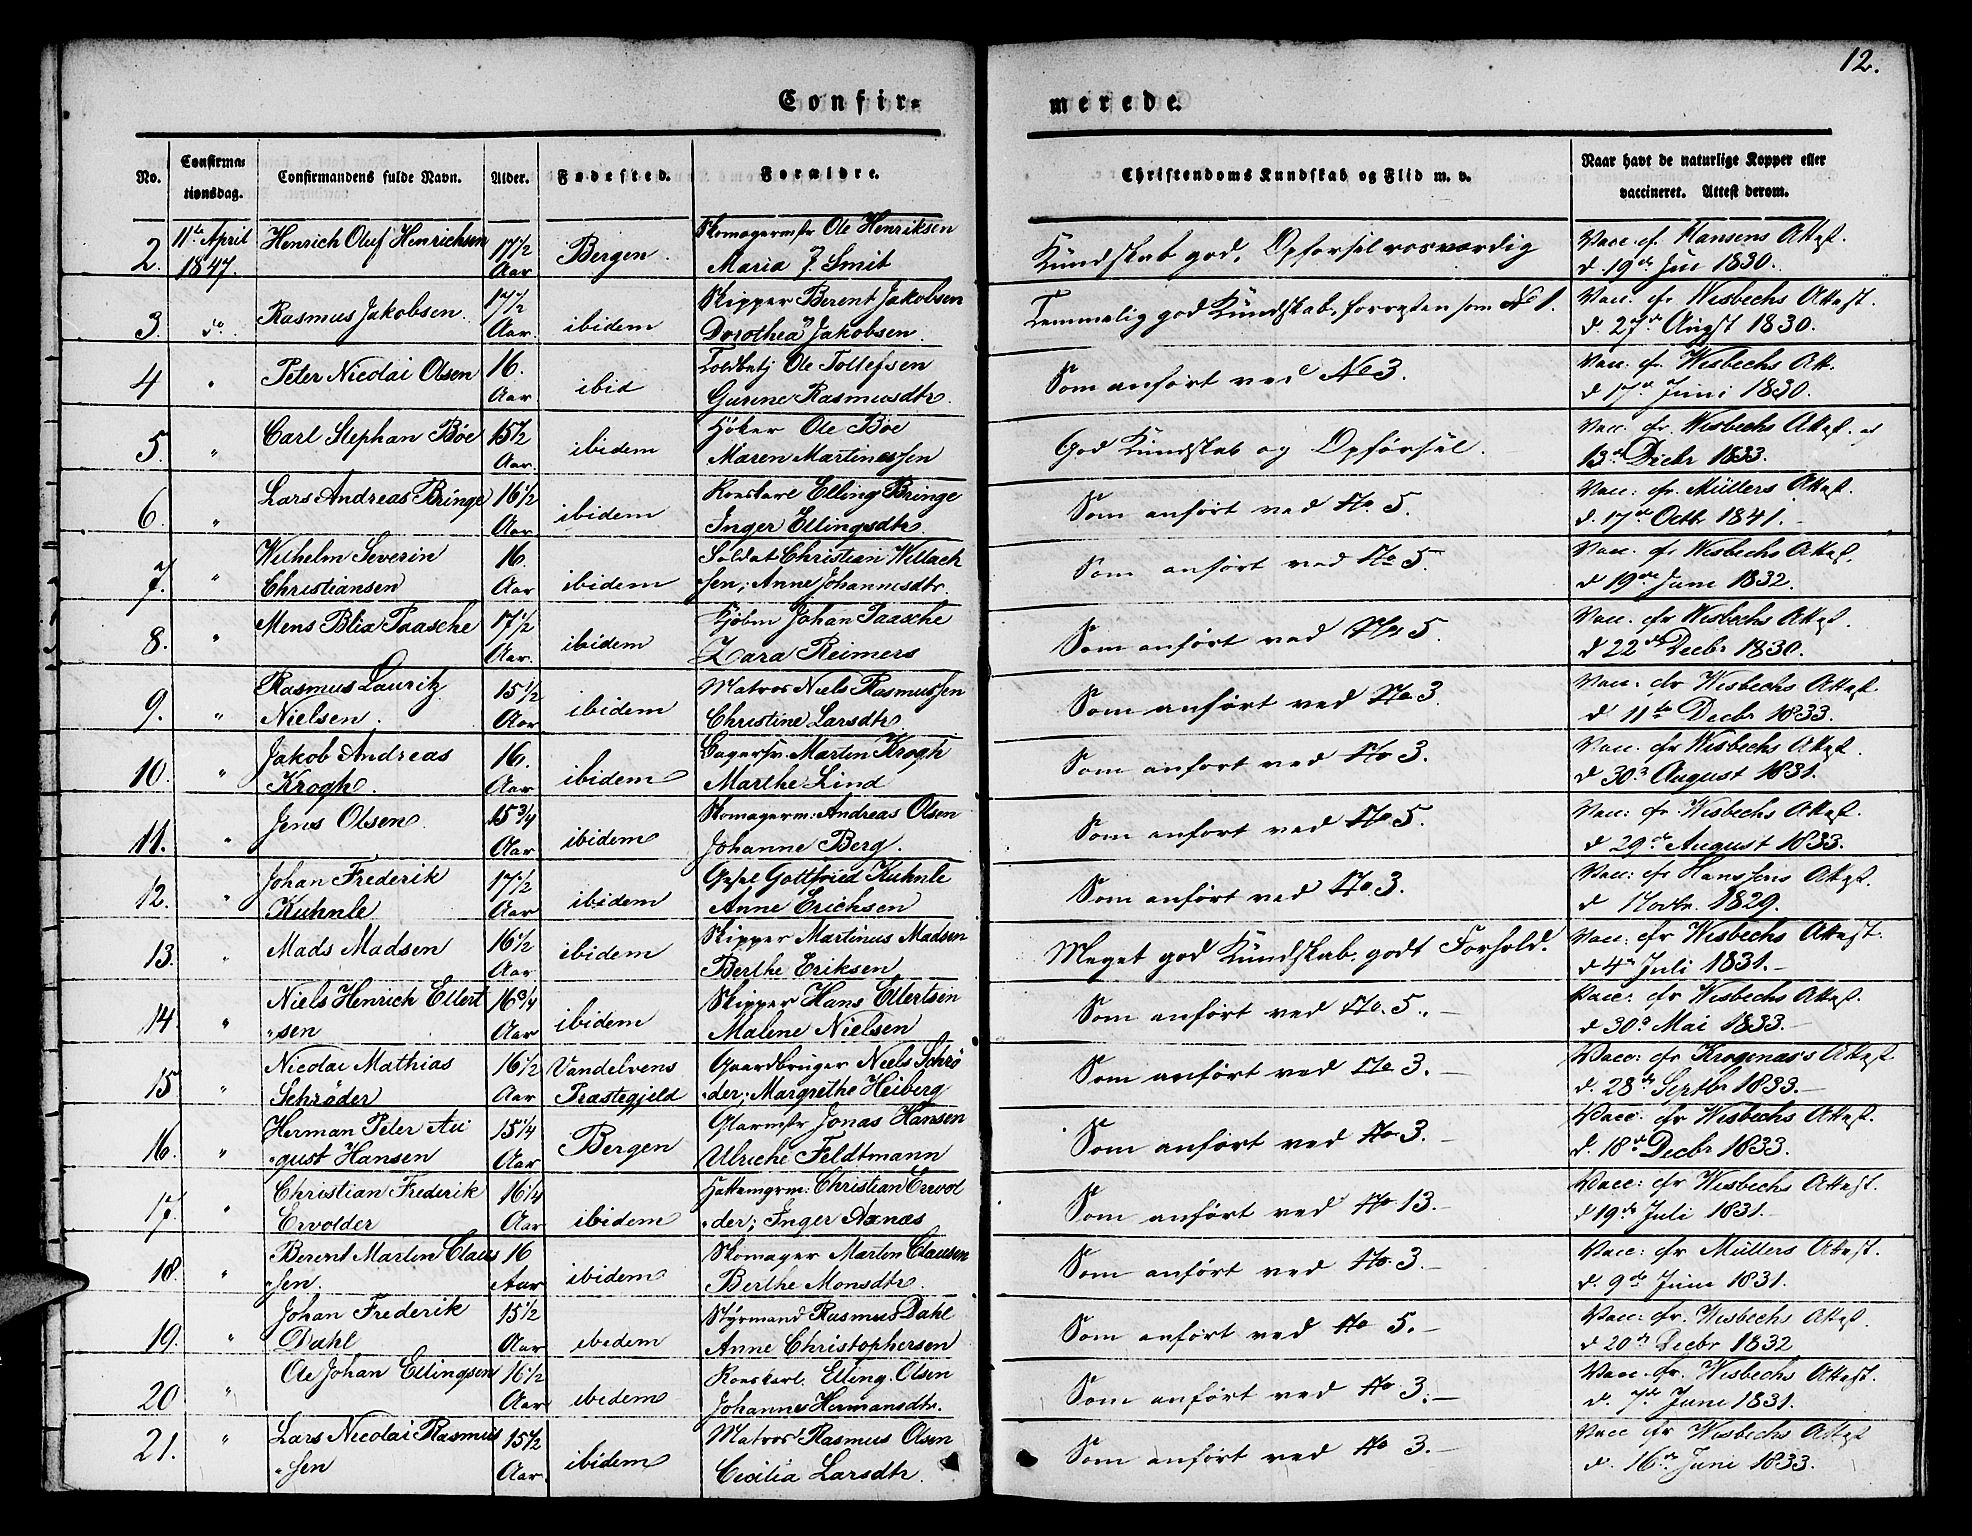 12.
Confir=
merede.
No.
Confirma=
tionsdag.
Confirmandens fulde Navn.
Alder.
Fødested.
Forældre.
Christendoms Kundskab og Flid m. v.
Naar havt de naturlige Kopper eller
vaccineret. Attest derom.
2. 11te April Henrich Oluf Henrichsen 17½ Bergen. Skomagermstr Ole Henriksen Kundskab god. Opførsel rosværdig Vacc. efr. Hansens Attest.
1847. Aar Maria J. Smit d. 19de Juli 1830.
3. do. Rasmus Jakobsen. 17½ ibidem Skipper Berent Jakobsen Temmelig god Kundskab, forresten som No 1. Vacc. efr Wisbechs Attest.
Aar. Dorothea Jakobsen. d. 27de Augst 1830.
4 " Peter Nicolai Olsen 16. ibid Ole Tollefsen Som anført ved No 3. Vac. efr. Wisbechs Att.
Aar Gurine Rasmusdtr. d 17de Juni 1830.
5. " Carl Stephan Bøe 15½ ibidem Høker Ole Bøe God Kundskab og Opførsel. Vacc. efr. Wisbechs Attest. d
Aar. Maren Martinessen 13de Decbr 1833.
6. " Lars Andreas Bringe 16½ ibidem Elling Bringe Som anført ved No. 5. Vacc: efr. Müllers Attest.
Aar Inger Ellingsdtr. d. 17de Octb 1841.-
7. " Wilhelm Severin 16. ibidem Soldat Christian Willach Som anført ved No 5. Vacc. efr Wisbechs Attest.
Christiansen Aar "sen; Anne Johannesdtr. d 19de Juni 1832.
8. " Mens Blix Paasche 17½ ibidem Kjøbm Johan Paasche Som anført ved No 5. Vacc. efr Wisbechs Attest.
Aar. Zara Reimers d 22de Decbr 1830.
9. " Rasmus Lauritz 15½ ibidem Matros Niels Rasmussen Som anført ved No 3. Vacc: efr Wisbechs Attest.
Nielsen. Aar Christine Larsdtr. d 11te Decbr 1833.
10. " Jakob Andreas 16. ibidem Martin Krogh Som anført ved No 3. Vacc. efr Wisbechs Attest.
Krogh. Aar Marthe Lind d 30te August 1831.
11. " Jens Olsen. 15¾ ibidem Skomagerm: Andreas Olsen Som anført ved No 5. Vacc: efr. Wisbechs Attest.
Aar Johanne Berg. d 29de August 1833.
12. " Johan Frederik 17½ ibidem Gottfried Kuhnle Som anført ved No 3. Vacc: efr Hanssens Attest.
Kuhnle Aar Anne Erichsen d Novbr. 1829.
13. " Mads Madsen 16½ ibidem Skipper Martinus Madsen Meget god Kundskab, godt Forhold. Vacc: efr Wisbechs Attest.
Aar Berthe Eriksen d 4de Juli 1831.-
14. " Niels Henrich Ellert 16¾ ibidem Skipper Hans Ellertsen Som anført ved No. 5.- Vacc: efr Wisbechs Attest.
"sen Aar Malene Nielsen d 30te Mai 1833.-
15 " Nicolai Mathias 16½ Vandelvens Gaardbruger Niels Schrø Som anført ved No 3.- Vacc: efr Krogenæs's Attest
Schrøder Aar Præstegjeld "der; Margrethe Heiberg d. 28de Septbr 1833.-
16. " Herman Peter Au 15¼ Bergen Glarmstr Jonas Hansen Som anført ved No 3.- Vacc: efr Wisbechs Attest.
"gust Hansen Aar Ulriche Feldtmann d. 18de Decbr 1833.
17. " Christian Frederik 16¼ ibidem Hattemgrm: Christian Ervol Som anført ved No 13. Vacc: efr Wisbechs Attest.
Ervolder Aar "der; Inger Axnæs d 19de Juli 1831.-
18. " Berent Martin Claus 16 ibidem Skomager Martin Clausen Som anført ved No. 3.- Vacc: efr Müllers Attest.
"sen. Aar Berthe Monsdtr. d. 9de Juni 1831.
19. " Johan Frederik 15½ ibidem Styrmand Rasmus Dahl Som anført ved No 5.- Vacc: efr. Wisbechs Attest.
Dahl Aar Anne Christophersen d 20de Decbr 1832
20 " Ole Johan Ellingsen 16½ ibidem Elling. Olsen Som anført ved No 3.- Vacc. efr. Wisbechs Attest.
Aar Johanne Hermansdtr. d. 7de Juni 1831.
21. " Lars Nicolai Rasmus 15½ ibidem. Matros Rasmus Olsen Som anført ved No 3.- Vacc efr Wisbechs Attest
"sen Aar. Cecilia Larsdtr. d. 16de Juni 1833.